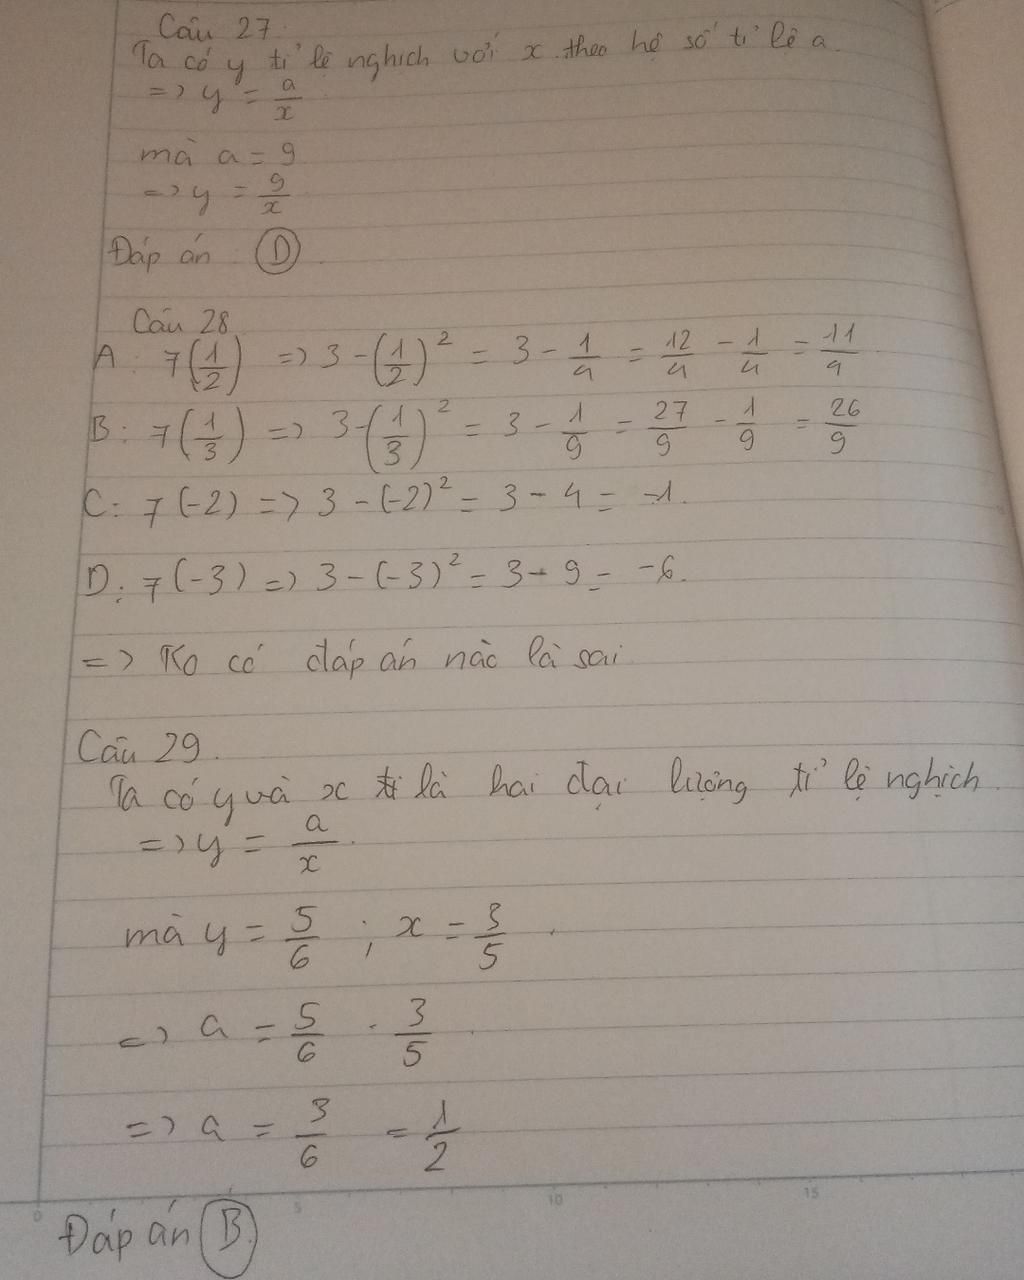 Câu 27.
Ta có y tỉ lệ nghịch với x theo hệ số tỉ lệ a.
=> y = a/x
mà a = 9
=> y = 9/x
Đáp án : D.
Câu 28
A : 7(1/2) => 3 - (1/2)² = 3 - 1/4 = 12/4 - 1/4 = 11/4
B : 7(1/3) => 3 - (1/3)² = 3 - 1/9 = 27/9 - 1/9 = 26/9
C : 7(-2) => 3 - (-2)² = 3 - 4 = -1.
D : 7(-3) => 3 - (-3)² = 3 - 9 = -6.
=> Ko có đáp án nào là sai.
Câu 29.
Ta có y và x là hai đại lượng tỉ lệ nghịch.
=> y = a/x.
mà y = 5/6 ; x = 3/5.
=> a = 5/6 . 3/5
=> a = 3/6 = 1/2
0 5 10 15
Đáp án B.